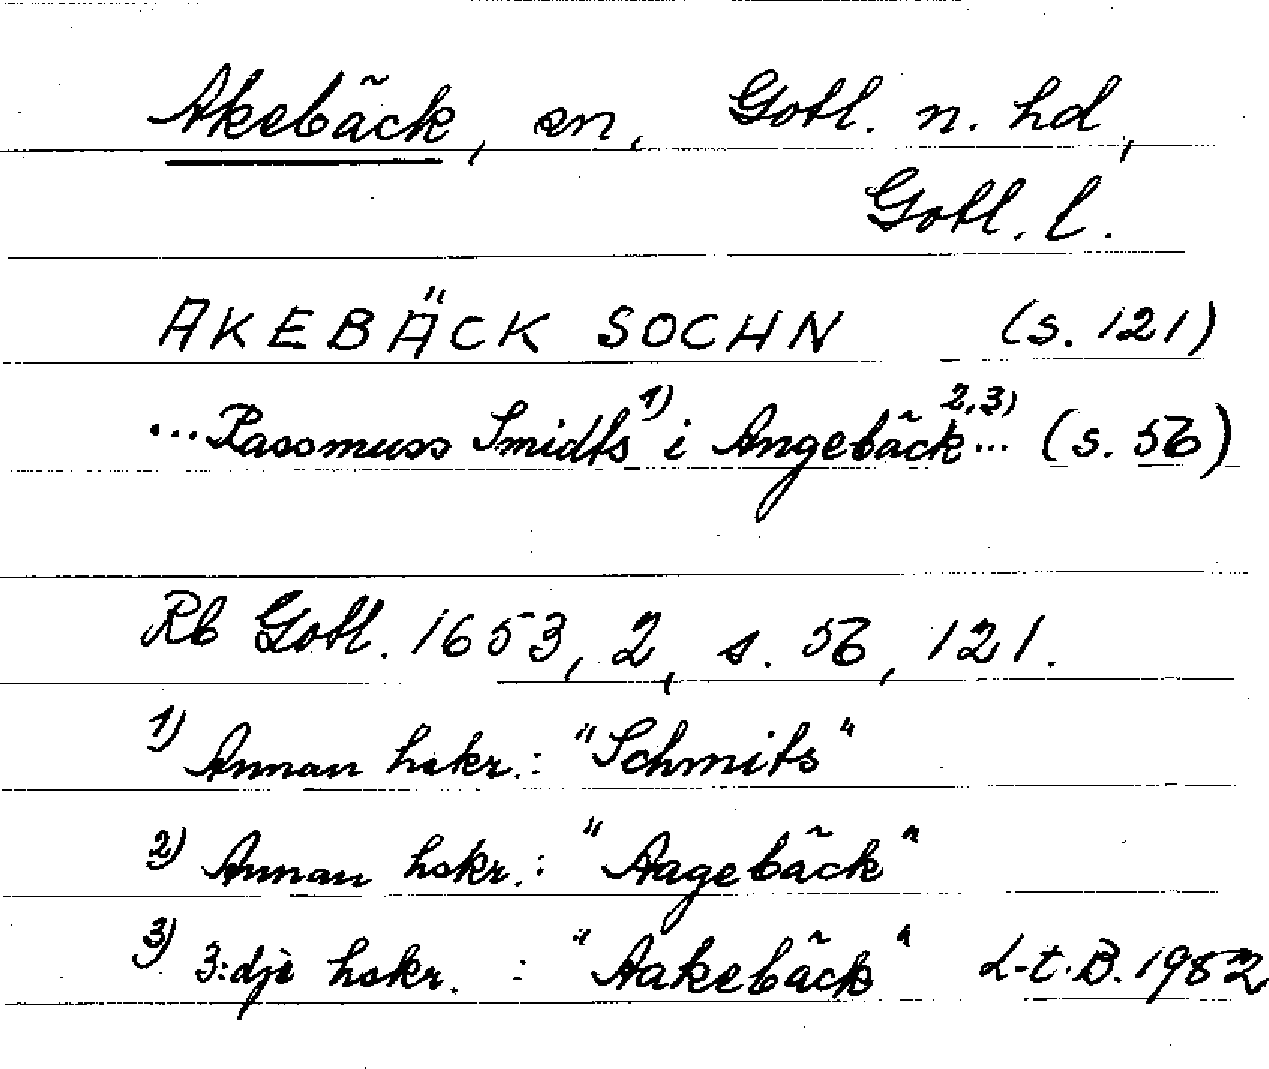 Akebäck, sn, Gotl. n. hd,
Gotl. l.
AKEBÄCK SOCHN (s. 121)
...Rassmuss Smidts 1) i Angebäck 2,3) ... (s. 56)
Rb Gotl. 1653, 2, s. 56, 121.
1) Annan hskr.: "Schmits"
2) Annan hskr.: "Aagebäck"
3) 3:dje hskr. : "Aakebäck" L-t.B. 1982